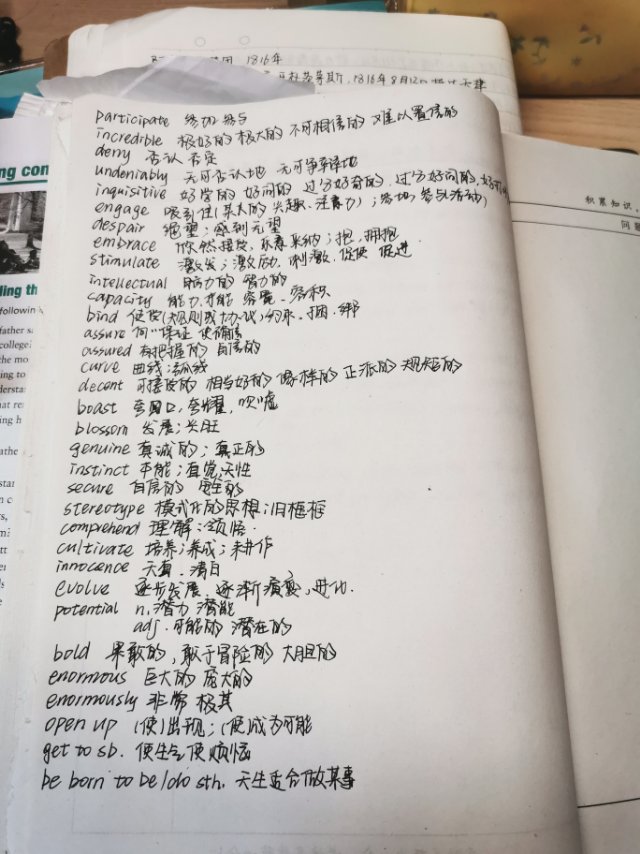 1816年
1816年8月12日
participate 参加 参与
incredible 极好的 极大的 不可相信的 难以置信的
deny 否认 否定
undeniably 无可否认地 无可争辩地
inquisitive 好学的 好问的 过分好奇的, 过分好问的,
engage 吸引住(某人的兴趣、注意力);参加, 参与(活动)
despair 绝望;感到无望
embrace 欣然接受, 乐意采纳;抱, 拥抱
stimulate 激发;激励, 刺激, 促使 促进
intellectual 脑力的 智力的
capacity 能力 才能 容量、容积
bind 使受(规则或协议)约束、捆、绑
assure 向…保证 使确信
assured 有把握的 自信的
curve 曲线;弧线
decent 可接受的 相当好的 像样的 正派的 规矩的
boast 夸夸口, 夸耀, 吹嘘
blossom 发展;兴旺
genuine 真诚的;真正的
instinct 本能;直觉;天性
secure 自信的 安全的
stereotype 模式化的思想;旧框框
comprehend 理解;领悟.
cultivate 培养;养成;耕作
innocence 天真、清白
evolve 逐步发展、逐渐演变, 进化.
potential n. 潜力 潜能
adj. 可能的 潜在的
bold 果敢的, 敢于冒险的 大胆的
enormous 巨大的 庞大的
enormously 非常 极其
open up (使)出现;(使)成为可能
get to sb. 使生气 使烦恼
be born to be/do sth. 天生适合做某事
积累知识,
问题
ng con
ling th
following
father s
college
the mo
ing to
derstan
that re
ing h